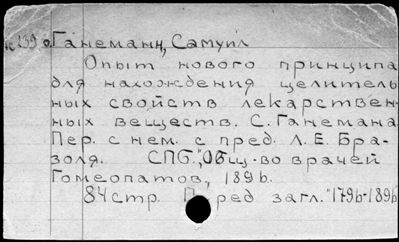 Ганеманн, Самуил
Опыт нового принципа
для нахождения целитель
ных свойств лекарствен-
ных веществ. С. Ганемана
Пер. с нем. с пред. Л. Е. Бра-
золя. СПб., "Общ-во врачей
Гомеопатов, 1896.
84 стр. Перед загл. "1796-1896